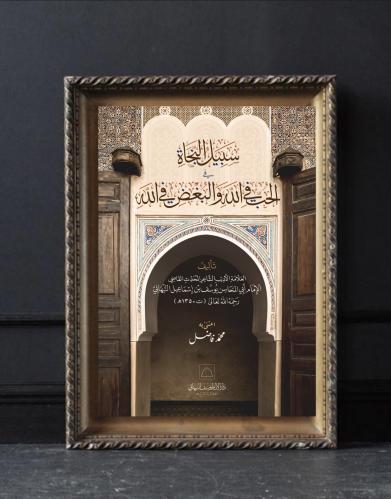 سبيل النجاة
في
الحب في الله والبغض في الله
تأليف
العلامة الأديب الشاعر المحدث القاضي
الإمام أبي المحاسن يوسف بن إسماعيل النبهاني
رحمه الله تعالى (ت ١٣٥٠هـ)
اعتنى به
محمد فاضل